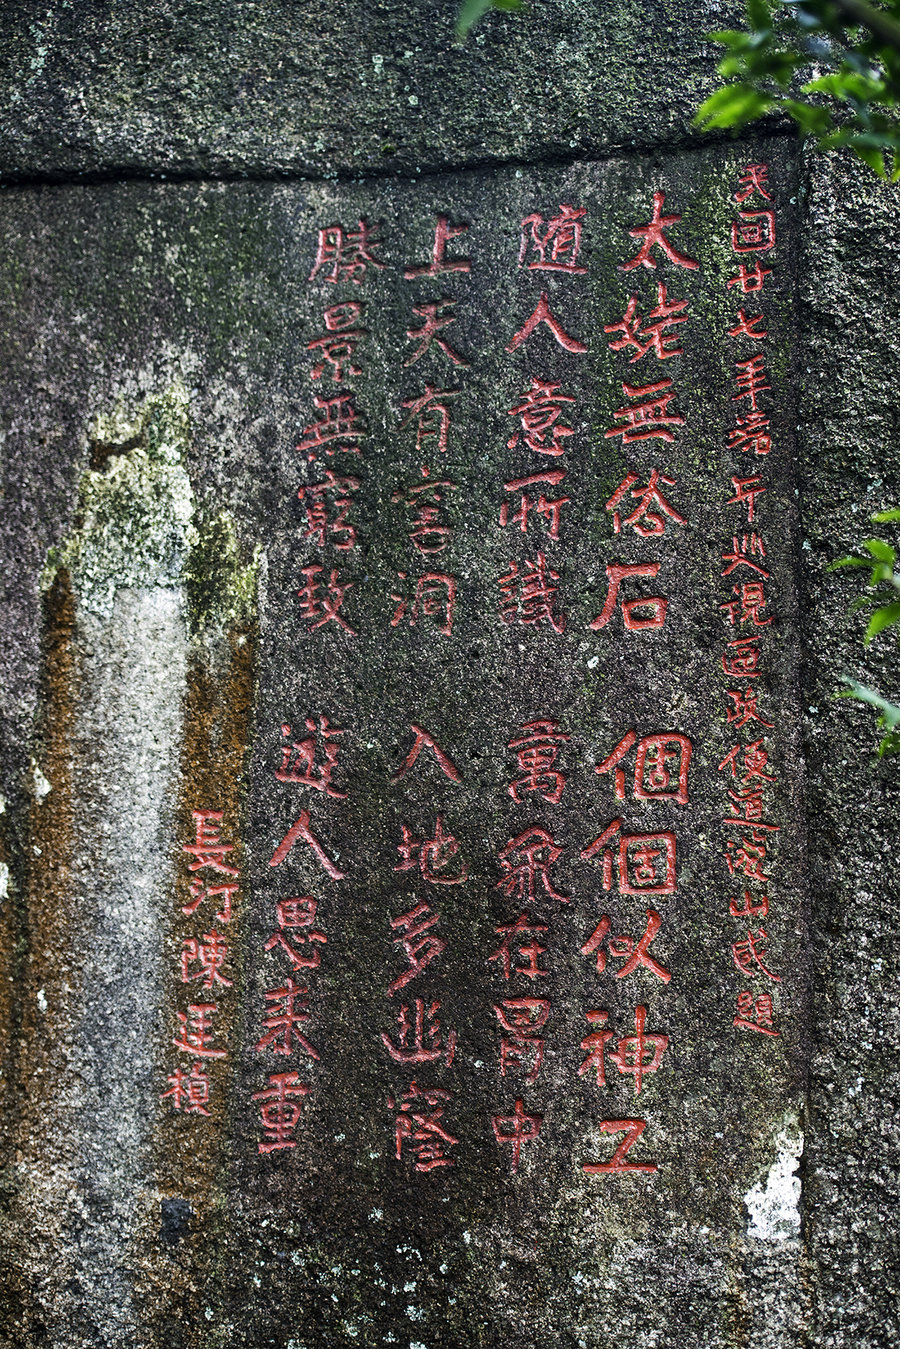 民國廿七年端午巡視區政便道山題
太姥無俗石 個個似神工
隨人意所識 萬象在胷中
上天有洞 入地多幽窿
勝景無窮致 遊人思來重
長汀陳廷楨